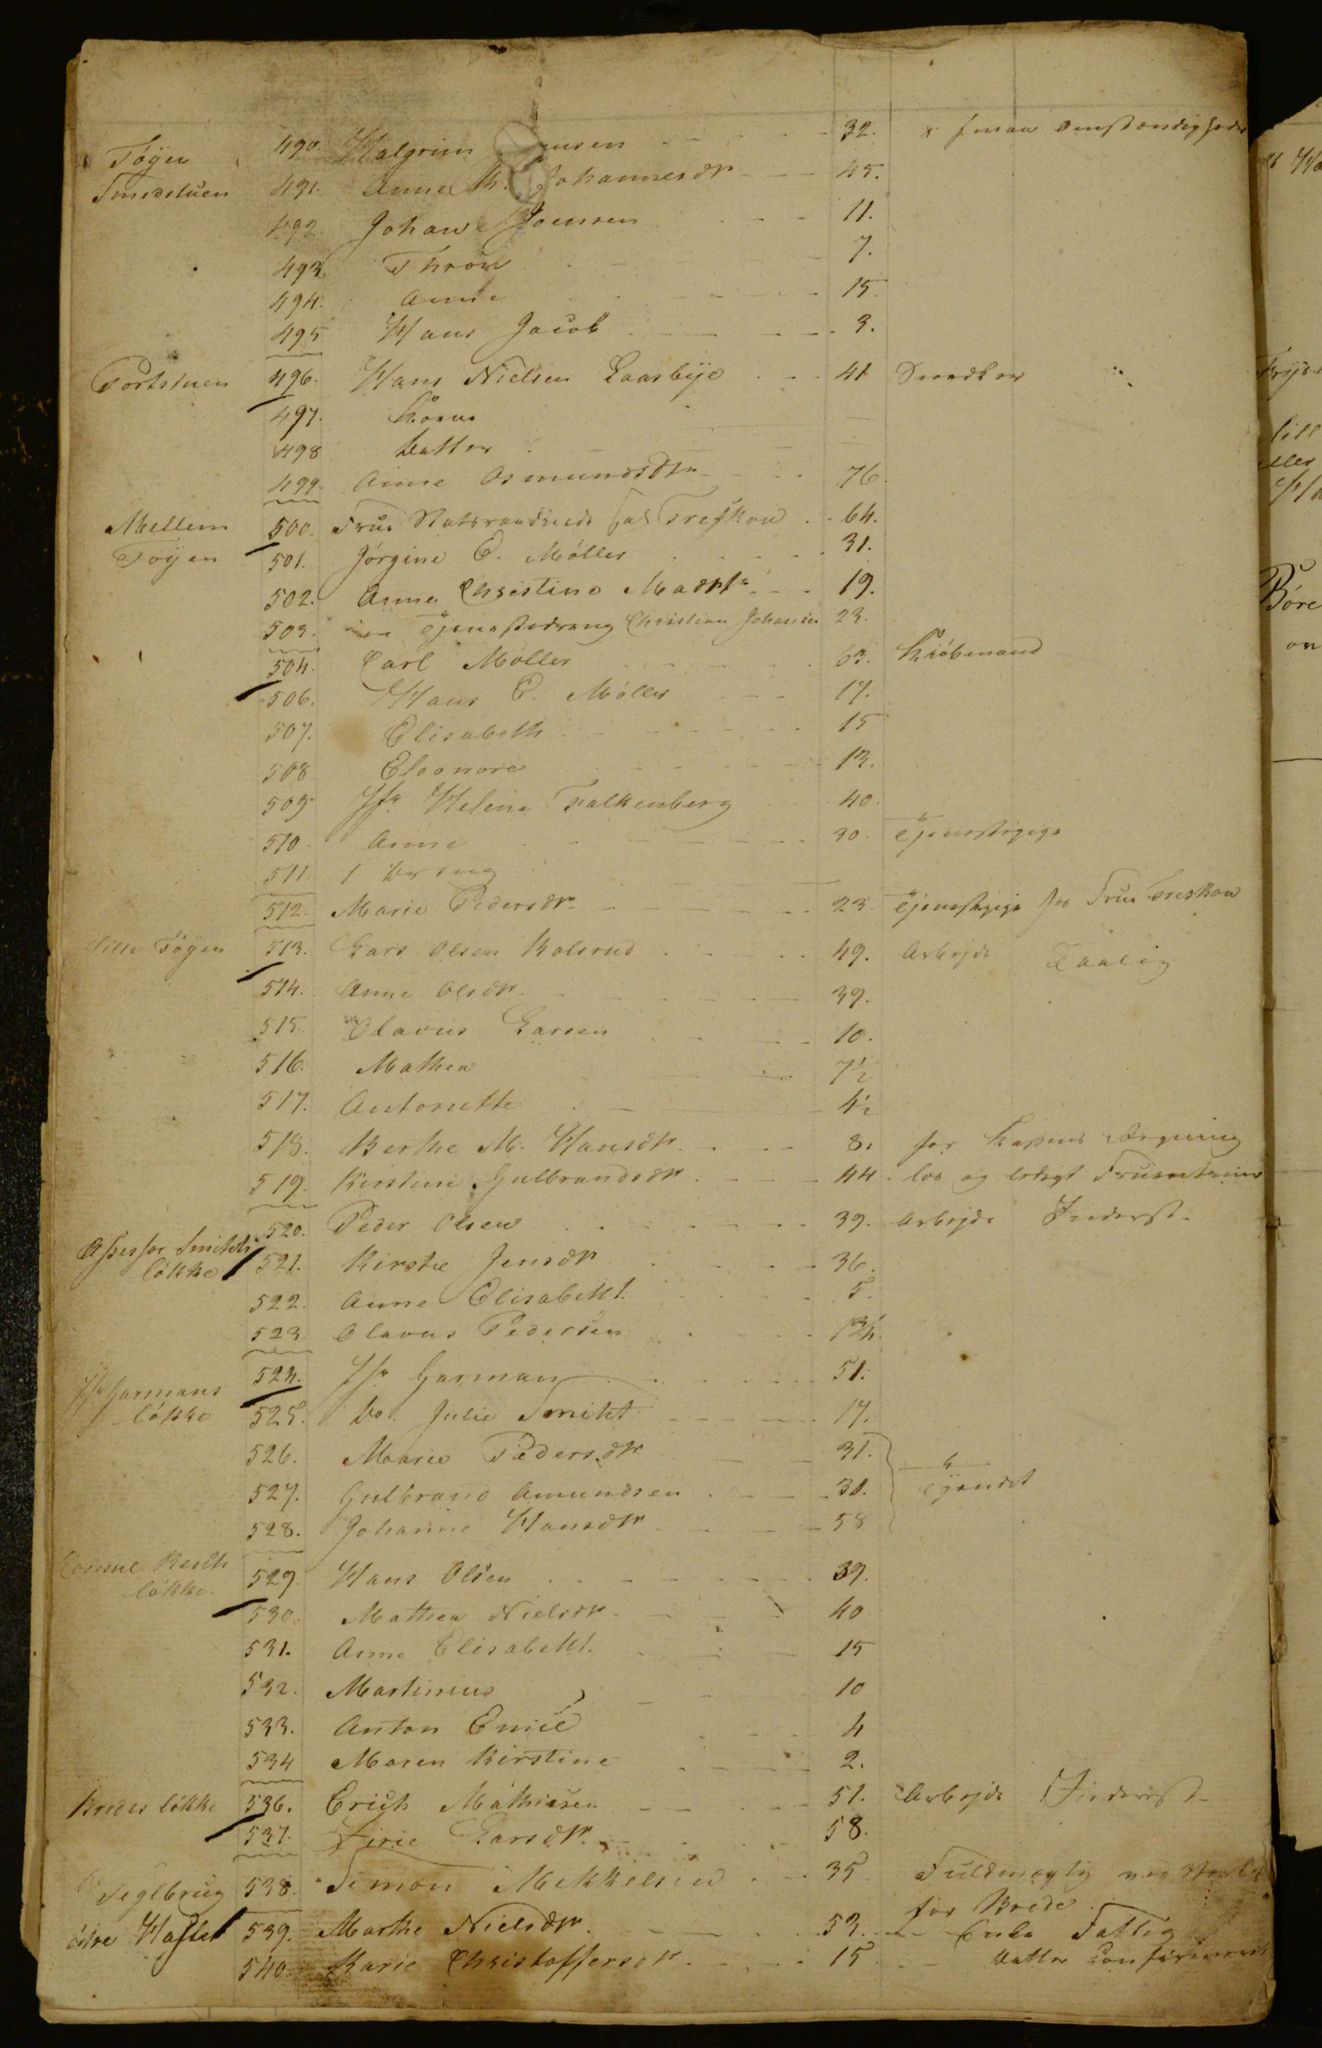 Tøyen 490. Halgrim Jensen 32. i smaa Omstændigheder
Smedstuen 491. Anne M. Johannesdtr 45.
492. Johan Joensen 11.
493. Thron 7.
494. Anne 15.
495 Hans Jacob 3.
Portstuen 496. Hans Nielsen Laasbye 41 Snedker
497. Kone
498 Datter
499. Anne Osmundsdtr 76.
Mellem 500. Frue Treskow 64.
Tøyen 501. Jørgine C. Møller 31.
502. Anne Christine Madsdtr 19.
503. Tjenestedreng Christian Johansen 23.
504. Carl Møller 63. Kiöbmand
506. Hans C. Møller 17.
507. Elisabeth 15
508 Eleonore 13.
509 Jfr Helene Falkenberg 40.
510 Anne 30. Tjenestepige
511. 1 Dreng
512. Marie Pedersdtr 23. Tjenestepige hos Frue Treskow
Lille Tøyen 513. Lars Olsen Kolsrud 49. Arbejds Taalig
514. Anne Olsdtr. 39.
515. Olavus Larsen 10.
516. Mathea 7½
517. Antonette 4½
518. Berthe M. Hansdtr 8. for Kassens Regning
519. Kirstine Gulbrandsdtr 44. løs og ledigt Fruentimer
520. Peder Olsen 39. Arbejds Inderst
Assessor Smithts
løkke 521. Kirstie Jensdtr 36.
522. Anne Elisabetht 5.
523. Olavus Pedersen 1¾
524. Jfr Garman 51.
Jfr Garmans
løkke 525. Do. Julie Smitht 17.
526. Marie Pedersdtr 31.
527. Gulbrand Amundsen 30. Tjendet
528. Johanne Hansdtr 58
løkke 529. Hans Olsen 39.
530. Mathea Nielsdtr. 40
531. Anne Elisabetht. 15
532. Martinius 10
533. Anton Emil 4
534 Maren Kirstine 2.
Bredes løkke 536. Erich Mathiesen 51. Arbejds Inderst
537. Sirie Larsdtr. 58.
Teglbrug 538. Simon Mekkelsen 35 Fuldmægtig ved
for Brede
østre Hasle 539. Marthe Nielsdtr. 53. Enke Fattig
540. Karie Christoffersdtr 15 Datter confirmeret